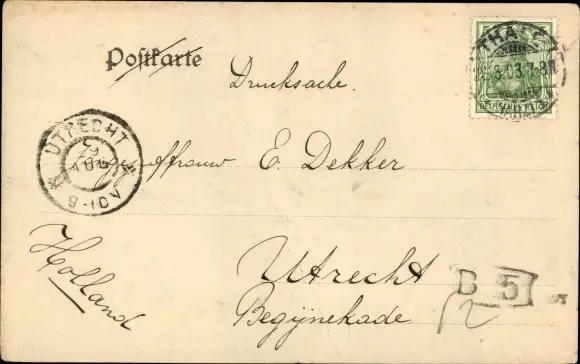 Postkarte
Drucksache.
THALE
8.03.7-8N
DEUTSCHES REICH
UTRECHT
29
AUG
8-10V
E. Dekker
Utrecht
Begijnekade
Holland
B 5